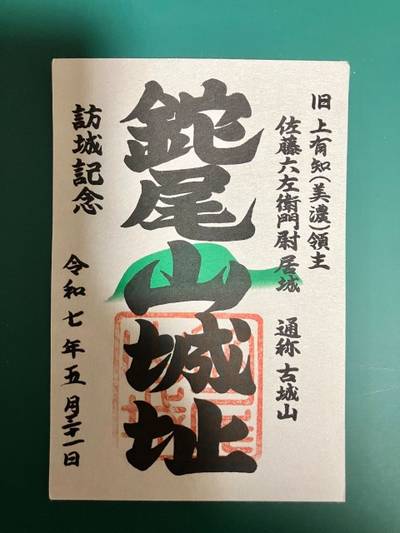 旧 上有知(美濃)領主
佐藤六左衛門尉 居城 通称 古城山
鉈尾山城址
訪城記念 令和七年五月三十一日